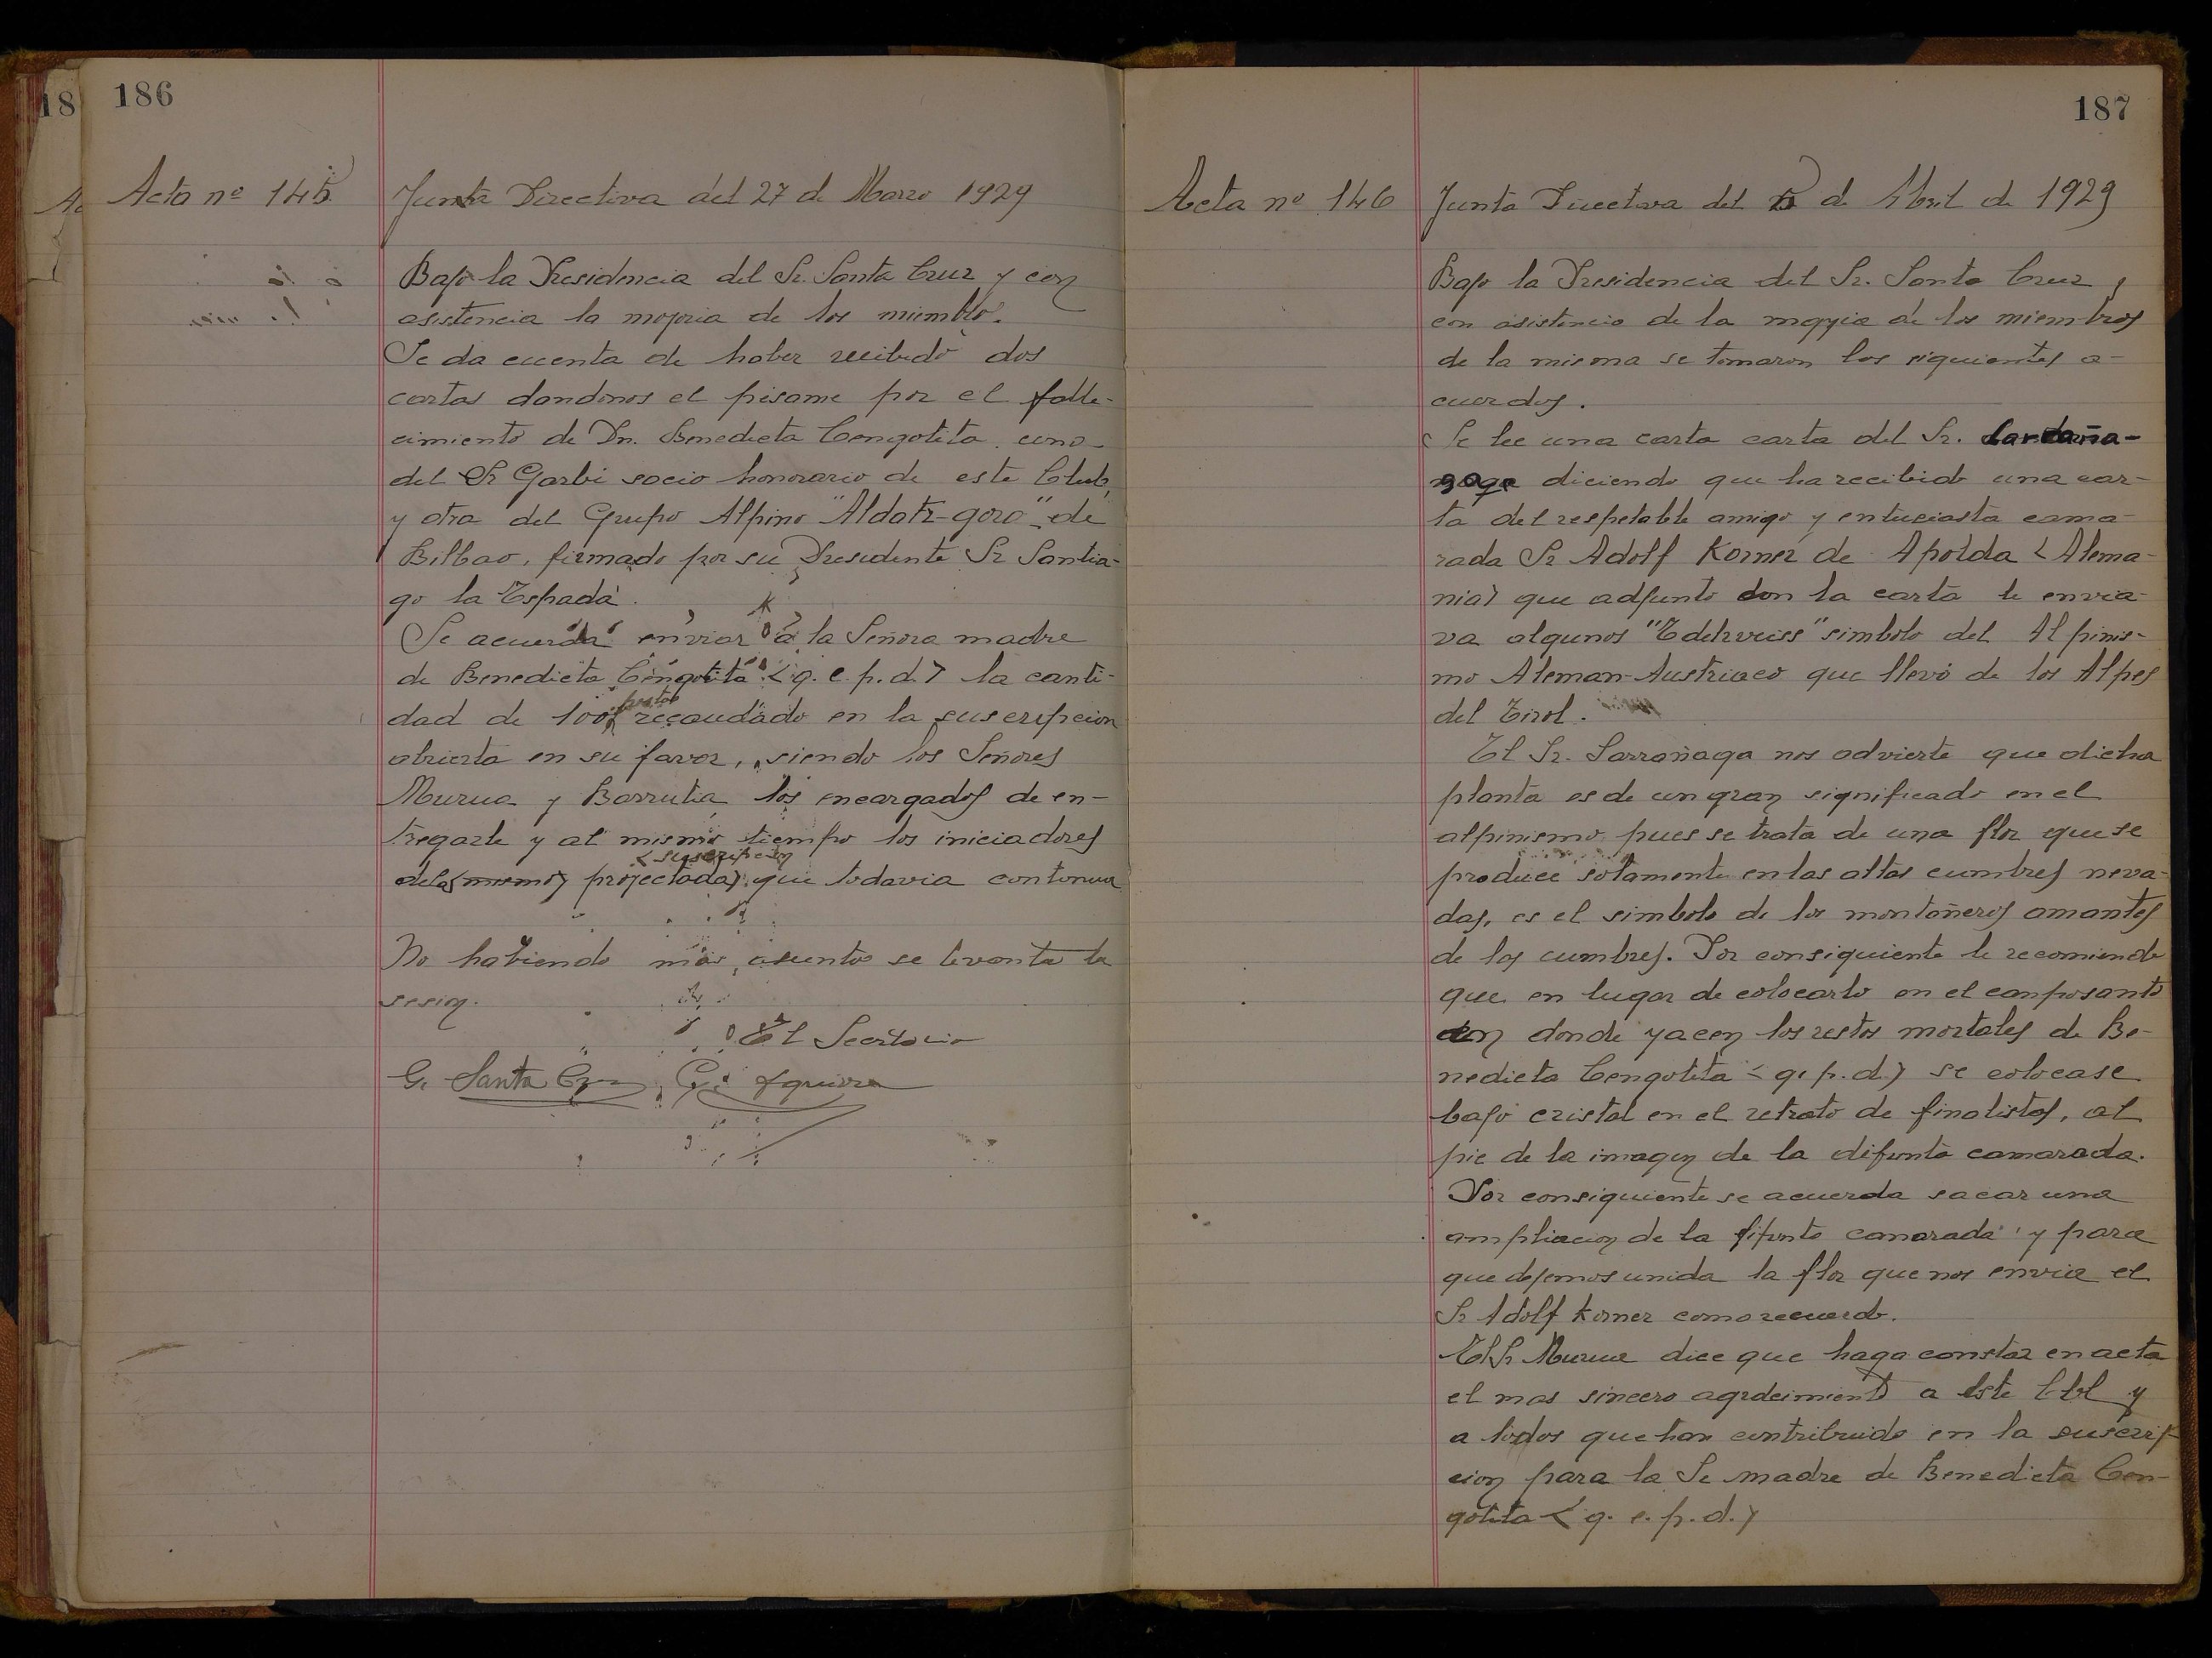 186
Acta nº 145.
Junta Directiva del 27 de Marzo 1929
Bajo la Presidencia del Sr. Santa Cruz y con
asistencia la mojoria de los miembro.
Se da cuenta de haber recibido dos
cartas dandonos el pisame por el falle-
cimiento de Dn. Benedicta Cengotita. una
del Sr Garbi socio honorario de este Club,
y otra del Grupo Alpino "Aldatz-gora" de
Bilbao, firmado por su Presidente Sr Santia-
go la Espada.
Se acuerda enviar a la Señora madre
de Benedicta Cengotita <q. e. p. d.> la canti-
dad de 100 pesetas recaudado en la suscripcion
abierta en su favor, siendo los Señores
Murua y Barrutia los encargados de en-
tregarle y al mismo tiempo los iniciadores
<suscripcion
de la (mismo) projectada) que todavia contonua
No habiendo mas, asuntos se levanta la
sesion.
El Secretario
G. Santa Cruz
187
Acta nº 146
Junta Directiva del de Abril de 1929
Bajo la Presidencia del Sr. Santa Cruz y
con asistencia de la mayyia de los miembros
de la misma se tomaron los siguientes a-
cuerdos.
Se lee una carta carta del Sr.
diciendo que ha recibido una car-
ta del respetable amigo y entusiasta cama-
rada Sr Adolf Korner de Apolda <Alema-
nia> que adjunto con la carta le envia-
va algunos "Edelweiss" simbolo del Alpinis-
mo Aleman-Austriaco que llevó de los Alpes
del Tirol.
El Sr. Larrañaga nos advierte que dicha
planta es de un gran significado en el
alpinismo pues se trata de una flor que se
produce solamente en las altas cumbres neva-
das, es el simbolo de los montañeros amantes
de las cumbres. Por consiguiente le recomienda
que en lugar de colocarlo en el camposanto
en donde yacen los restos mortales de Be-
nedicta Cengotita <q. p. d.> se colocase
bajo cristal en el retrato de finalistas, al
pie de la imagen de la difunta camarada.
Por consiguiente se acuerda sacar una
ampliacion de la fifunta camarada y para
que dejemos unida la flor que nos envia el
Sr Adolf Korner como recuerdo.
El Sr Murua dice que haga constar en acta
el mas sincero agrdecimiento a este y
a todos que han contribuido en la suscrip-
cion para la Sr madre de Benedicta Cen-
gotita <q. e. p. d.>